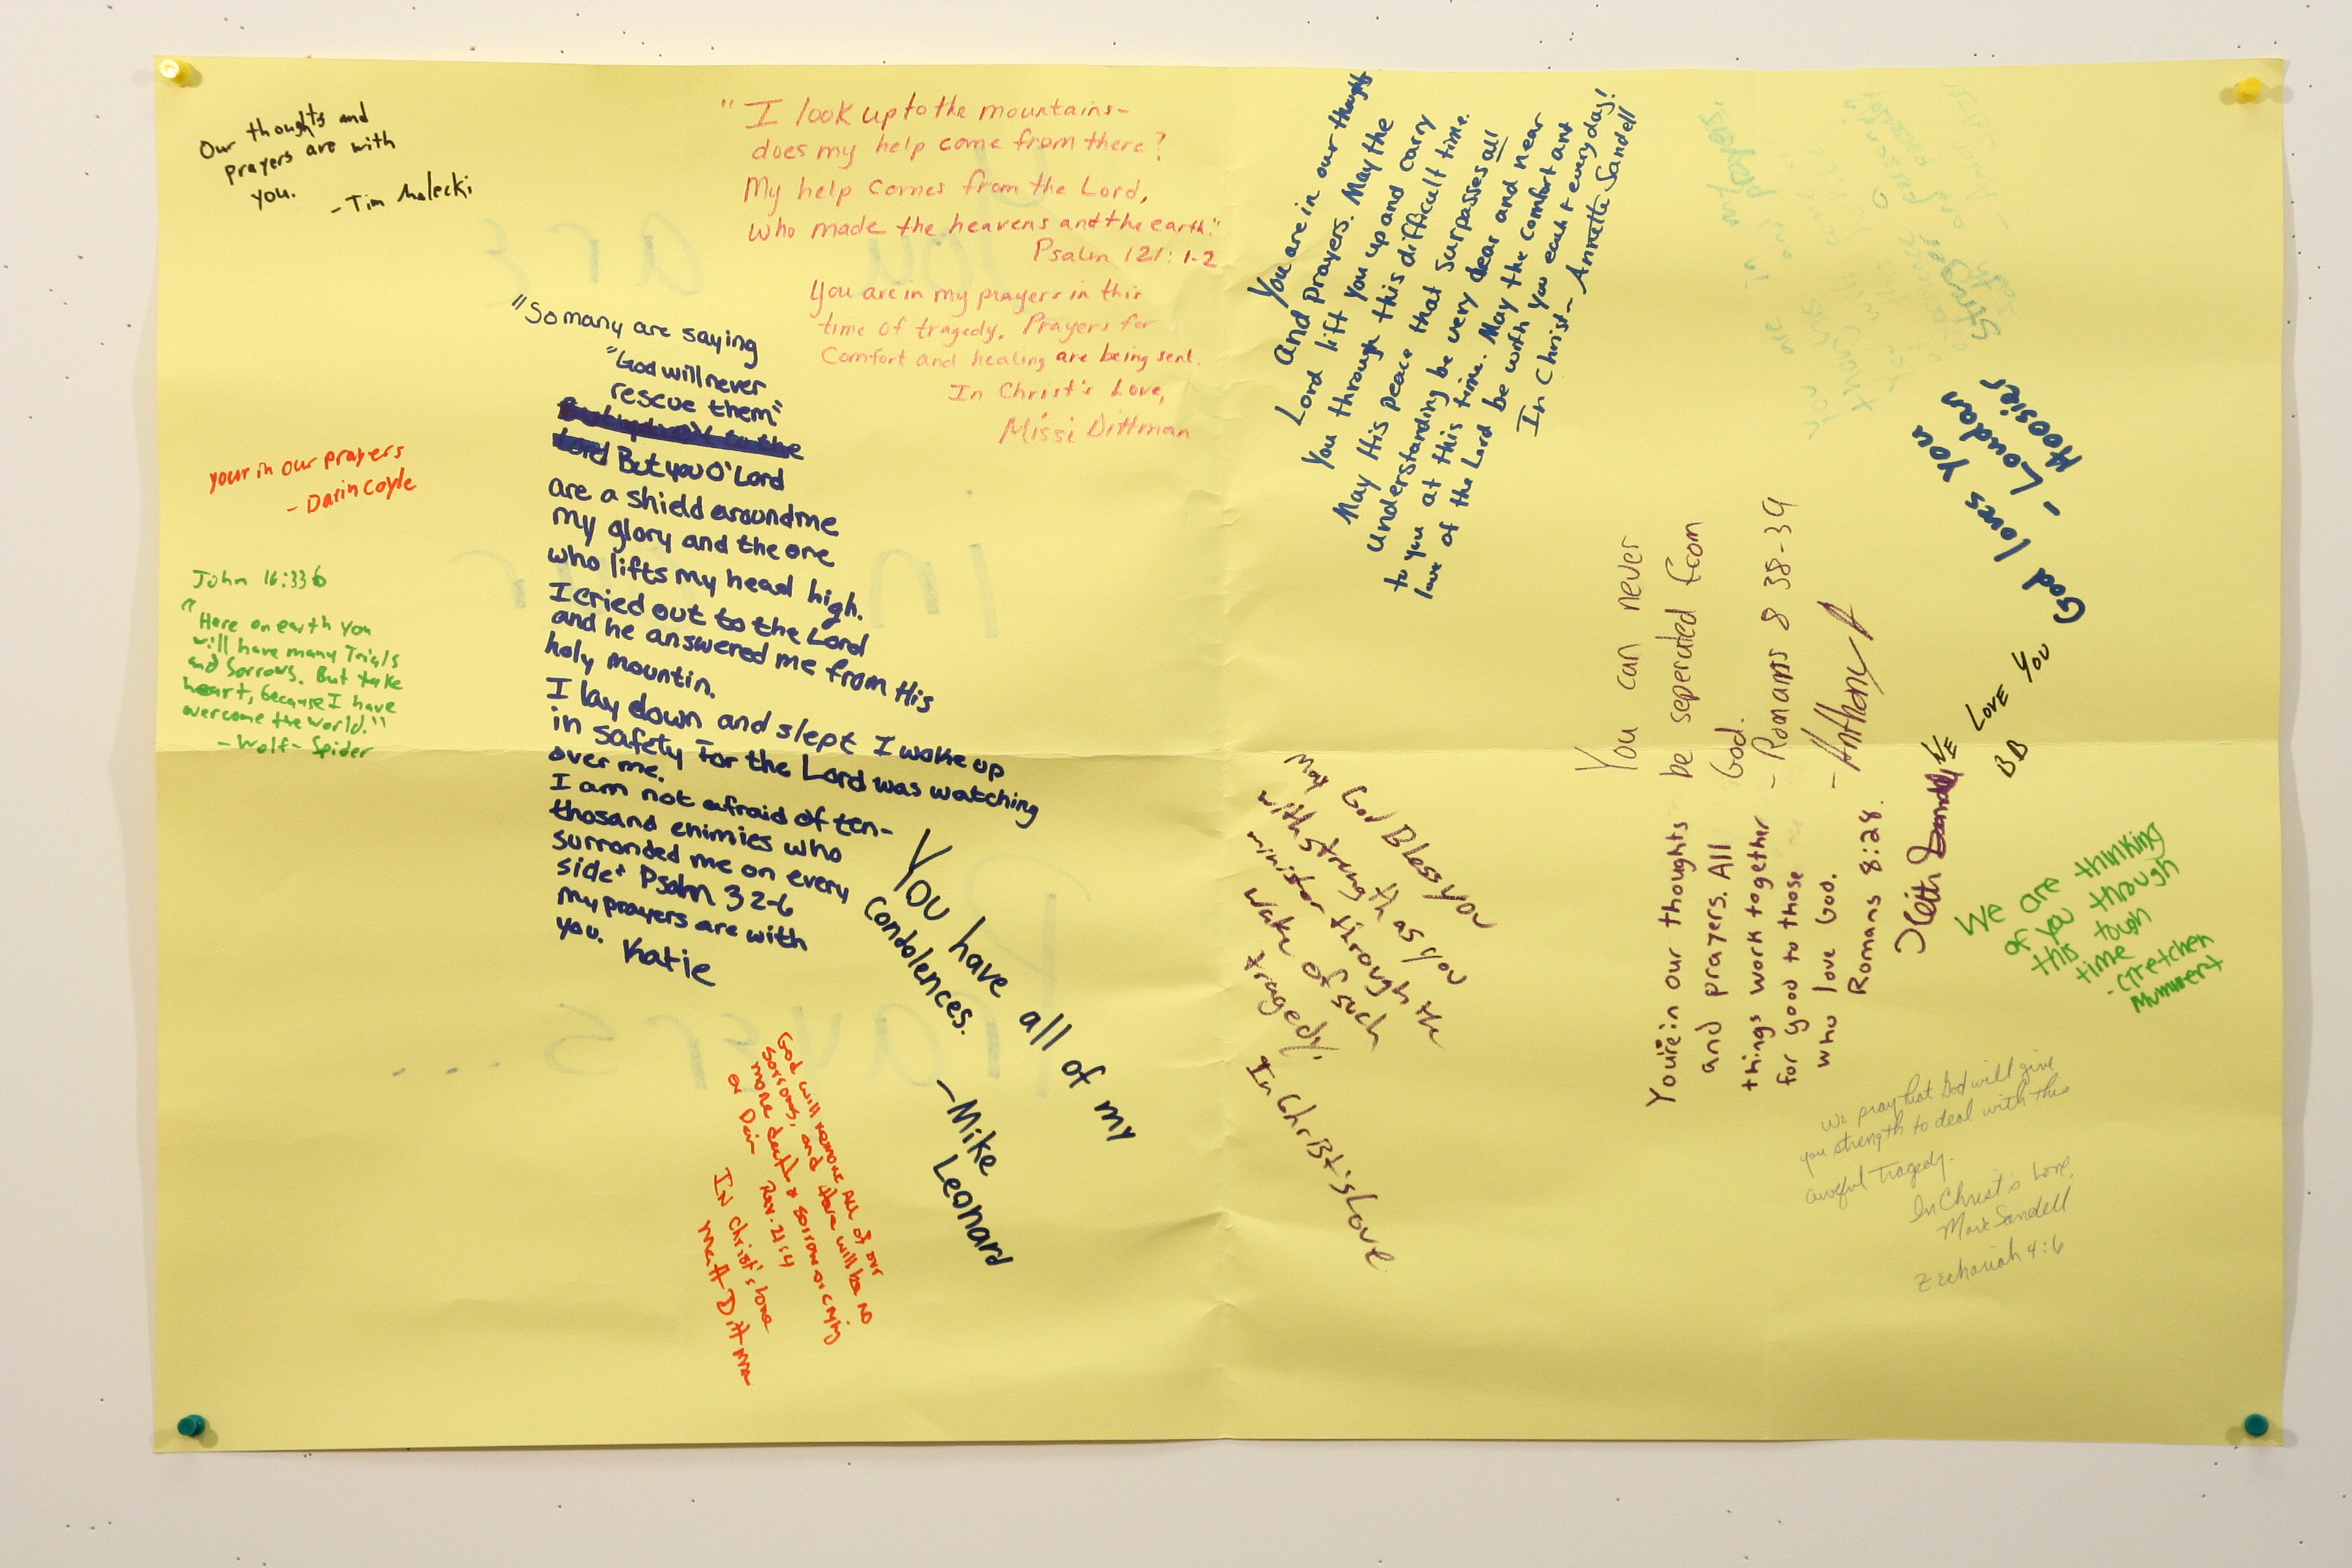 Our thoughts and
prayers are with
you.
-Tim Malecki
"I look up to the mountains-
does my help come from there?
My help comes from the Lord,
who made the heavens and the earth."
Psalm 121:1-2
You are in my prayers in this
time of tragedy. Prayers for
Comfort and healing are being sent.
In Christ's Love,
Missi Dittman
"So many are saying
"God will never
rescue them"
Lord But you O'Lord
are a shield around me
my glory and the one
who lifts my head high.
I cried out to the Lord
and he answered me from His
holy mountin.
I lay down and slept I woke up
in safety For the Lord was watching
over me.
I am not afraid of ten-
thosand enimies who
surronded me on every
side" Psalm 3 2-6
my prayers are with
you. Katie
your in our prayers
- Darin Coyle
John 16:33b
"Here on earth you
will have many Trials
and Sorrows. But take
heart, because I have
overcome the world."
-Wolf-Spider
You have all of my
Condolences.
-Mike
Leonard
God will remove all of our
sorrows, and there will be no
more death or sorrow or crying
or Pain Rev. 21:4
IN Christ's Love
Matt Dittman
You are in our thoughts
and prayers. May the
Lord lift you up and carry
you through this difficult time.
May His peace that surpasses all
understanding be very dear and near
to you at this time. May the comfort and
love of the Lord be with you each + every day!
In Christ- Annette Sandell
You are in my
and prayers.
God loves you
- Loudon
Hoosier
You can never
be seperated from
God.
- Romans 8 38-39
- Anthony
WE LOVE YOU
BB
May God Bless you
with strength as you
minister through the
wake of such
tragedy.
In Christ's Love
You're in our thoughts
and prayers. All
things work together
for good to those
who love God.
Romans 8:28
Keith
We are thinking
of you through
this tough
time
-Gretchen
Mummert
We pray that God will give
you strength to deal with this
awful tragedy.
In Christ's Love,
Mark Sandell
Zechariah 4:6
You are
in our
Prayers....